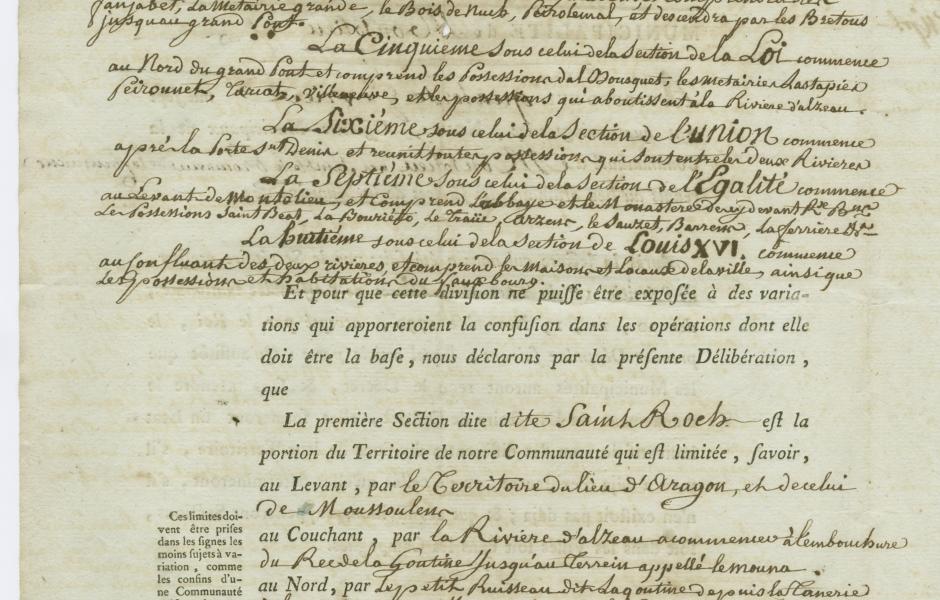 Janjabet, La Metairie grande, le Bois de Nueh, Petrolemal, et descendra par les Bretous
jusqu'au grand Pont.
La Cinquieme sous celui de la Section de la Loi commence
au Nord du grand Pont et comprend les Possessions dal Bousquet, les metairies Lastapies
Peironnet, Tariats, Villeneuve, et les possessions qui aboutissent à la Riviere d'alzeau.
La Sixiéme sous celui de la Section de l'union commence
après la Porte St Denis et reunit toutes possessions qui sont entre les deux Rivieres
La Septiéme sous celui de la Section de l'Egalité commence
au Levant de Montolieu, et Comprend L'abbaye et le Monastere des cy devant
Les Possessions Saint Beat, La Bouriette, Le Traüc, Carzens, le Sauzet, Barrein, la ferriere
La huitiéme sous celui de la Section de Louis XVI. commence
au Confluant des deux rivieres, et comprend les Maisons et Locaux de la ville, ainsi que
Les possessions et habitations du Fauxbourg.
Et pour que cette division ne puisse être exposée à des varia-
tions qui apporteroient la confusion dans les opérations dont elle
doit être la base, nous déclarons par la présente Délibération,
que
La première Section dite dite Saint Roch est la
portion du Territoire de notre Communauté qui est limitée, savoir,
au Levant, par le Territoire du lieu d'Aragon, et de celui
de Moussoulens
Ces limites doi-
vent être prises
dans les signes les
moins sujets à va-
riation, comme
les confins d'u-
ne Communauté
au Couchant, par la Riviere d'alzeau a commencer à l'embouchure
du Rec de la Goutine jusqu'au Terrein appellé le mouna.
au Nord, par Le petit Ruisseau dit La goutine depuis la Tanerie